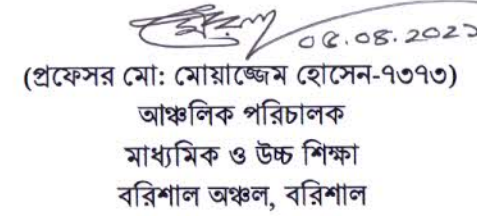 (প্রফেসর মো: মোয়াজ্জেম হোসেন-৭৩৭৩)
আঞ্চলিক পরিচালক
মাধ্যমিক ও উচ্চ শিক্ষা
বরিশাল অঞ্চল, বরিশাল